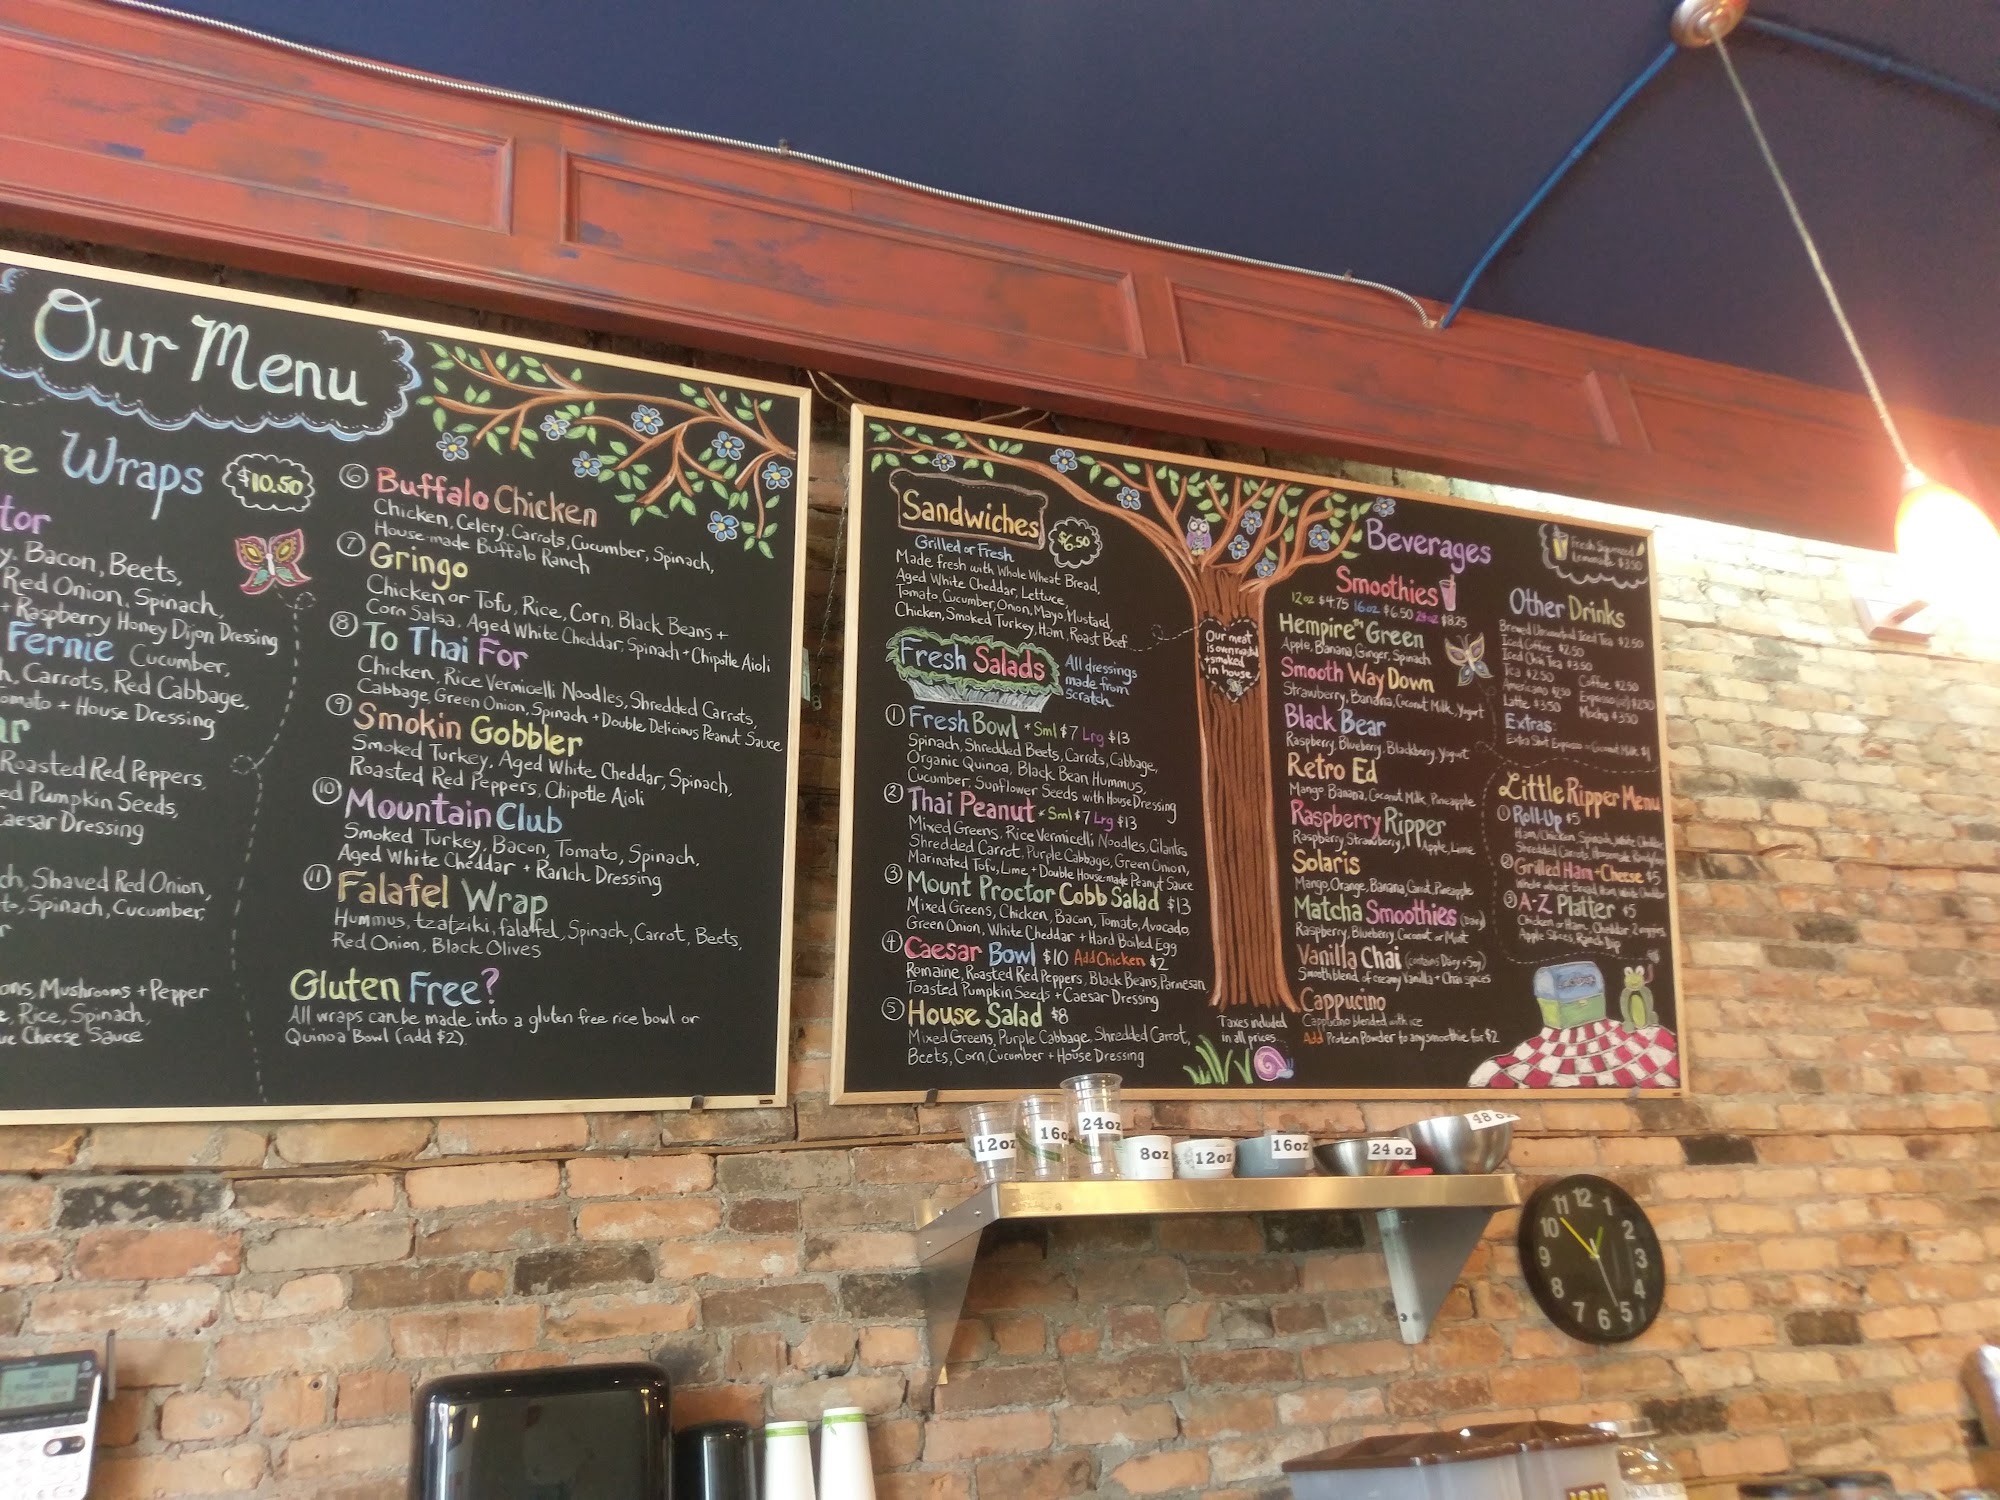 Our Menu
re Wraps $10.50
tor
y, Bacon, Beets,
Red Onion, Spinach,
+ Raspberry Honey Dijon Dressing
Fernie Cucumber,
h, Carrots, Red Cabbage,
omato + House Dressing
ar
Roasted Red Peppers,
ed Pumpkin Seeds,
Caesar Dressing
ch, Shaved Red Onion,
to, Spinach, Cucumber,
r
ons, Mushrooms + Pepper
e, Rice, Spinach,
ue Cheese Sauce
6 Buffalo Chicken
Chicken, Celery, Carrots, Cucumber, Spinach,
House-made Buffalo Ranch
7 Gringo
Chicken or Tofu, Rice, Corn, Black Beans +
Corn Salsa, Aged White Cheddar, Spinach + Chipotle Aioli
8 To Thai For
Chicken, Rice Vermicelli Noodles, Shredded Carrots,
Cabbage, Green Onion, Spinach + Double Delicious Peanut Sauce
9 Smokin Gobbler
Smoked Turkey, Aged White Cheddar, Spinach,
Roasted Red Peppers, Chipotle Aioli
10 Mountain Club
Smoked Turkey, Bacon, Tomato, Spinach,
Aged White Cheddar + Ranch Dressing
11 Falafel Wrap
Hummus, tzatziki, falafel, Spinach, Carrot, Beets,
Red Onion, Black Olives
Gluten Free?
All wraps can be made into a gluten free rice bowl or
Quinoa Bowl (add $2).
Sandwiches $6.50
Grilled or Fresh
Made fresh with Whole Wheat Bread,
Aged White Cheddar, Lettuce,
Tomato, Cucumber, Onion, Mayo, Mustard,
Chicken, Smoked Turkey, Ham, Roast Beef
Fresh Salads
All dressings
made from
scratch
1 Fresh Bowl * Sml $7 Lrg $13
Spinach, Shredded Beets, Carrots, Cabbage,
Organic Quinoa, Black Bean Hummus,
Cucumber, Sunflower Seeds with House Dressing
2 Thai Peanut * Sml $7 Lrg $13
Mixed Greens, Rice Vermicelli Noodles, Cilantro
Shredded Carrot, Purple Cabbage, Green Onion,
Marinated Tofu, Lime + Double House-made Peanut Sauce
3 Mount Proctor Cobb Salad $13
Mixed Greens, Chicken, Bacon, Tomato, Avocado,
Green Onion, White Cheddar + Hard Boiled Egg
4 Caesar Bowl $10 Add Chicken $2
Romaine, Roasted Red Peppers, Black Beans, Parmesan,
Toasted Pumpkin Seeds + Caesar Dressing
5 House Salad $8
Mixed Greens, Purple Cabbage, Shredded Carrot,
Beets, Corn, Cucumber + House Dressing
Our meat
is oven roasted
+ smoked
in house
Taxes included
in all prices
Beverages
Smoothies
12oz $4.75 16oz $6.50 24oz $8.25
Hempire Green
Apple, Banana, Ginger, Spinach
Smooth Way Down
Strawberry, Banana, Coconut Milk, Yogurt
Black Bear
Raspberry, Blueberry, Blackberry, Yogurt
Retro Ed
Mango Banana, Coconut Milk, Pineapple
Raspberry Ripper
Raspberry Strawberry, Apple, Lime
Solaris
Mango, Orange, Banana, Carrot, Pineapple
Matcha Smoothies (Dairy)
Raspberry, Blueberry, Coconut or Mint
Vanilla Chai (contains Dairy + Soy)
Smooth blend of creamy Vanilla + Chai spices
Cappucino
Cappucino blended with ice
Add Protein Powder to any smoothie for $2
Fresh Squeezed
Lemonade $3.50
Other Drinks
Brewed Unsweetened Iced Tea $2.50
Iced Coffee $2.50
Iced Chai Tea $3.50
Tea $2.50 Coffee $2.50
Americano $2.50 Espresso $2.50
Latte $3.50 Mocha $3.50
Extras:
Extra Shot Espresso or Coconut Milk $1
Little Ripper Menu
1 Roll-Up $5
Ham/Chicken, Spinach, White Cheddar
Shredded Carrots, Homemade
2 Grilled Ham + Cheese $5
Whole wheat Bread, Ham, White Cheddar
3 A-Z Platter $5
Chicken or Ham, Cheddar, 2 veggies,
Apple Slices, Ranch Dip
12oz
16o
24oz
8oz
12oz
16oz
24 oz
48 oz
11 12 1
10 2
9 3
8 4
7 6 5